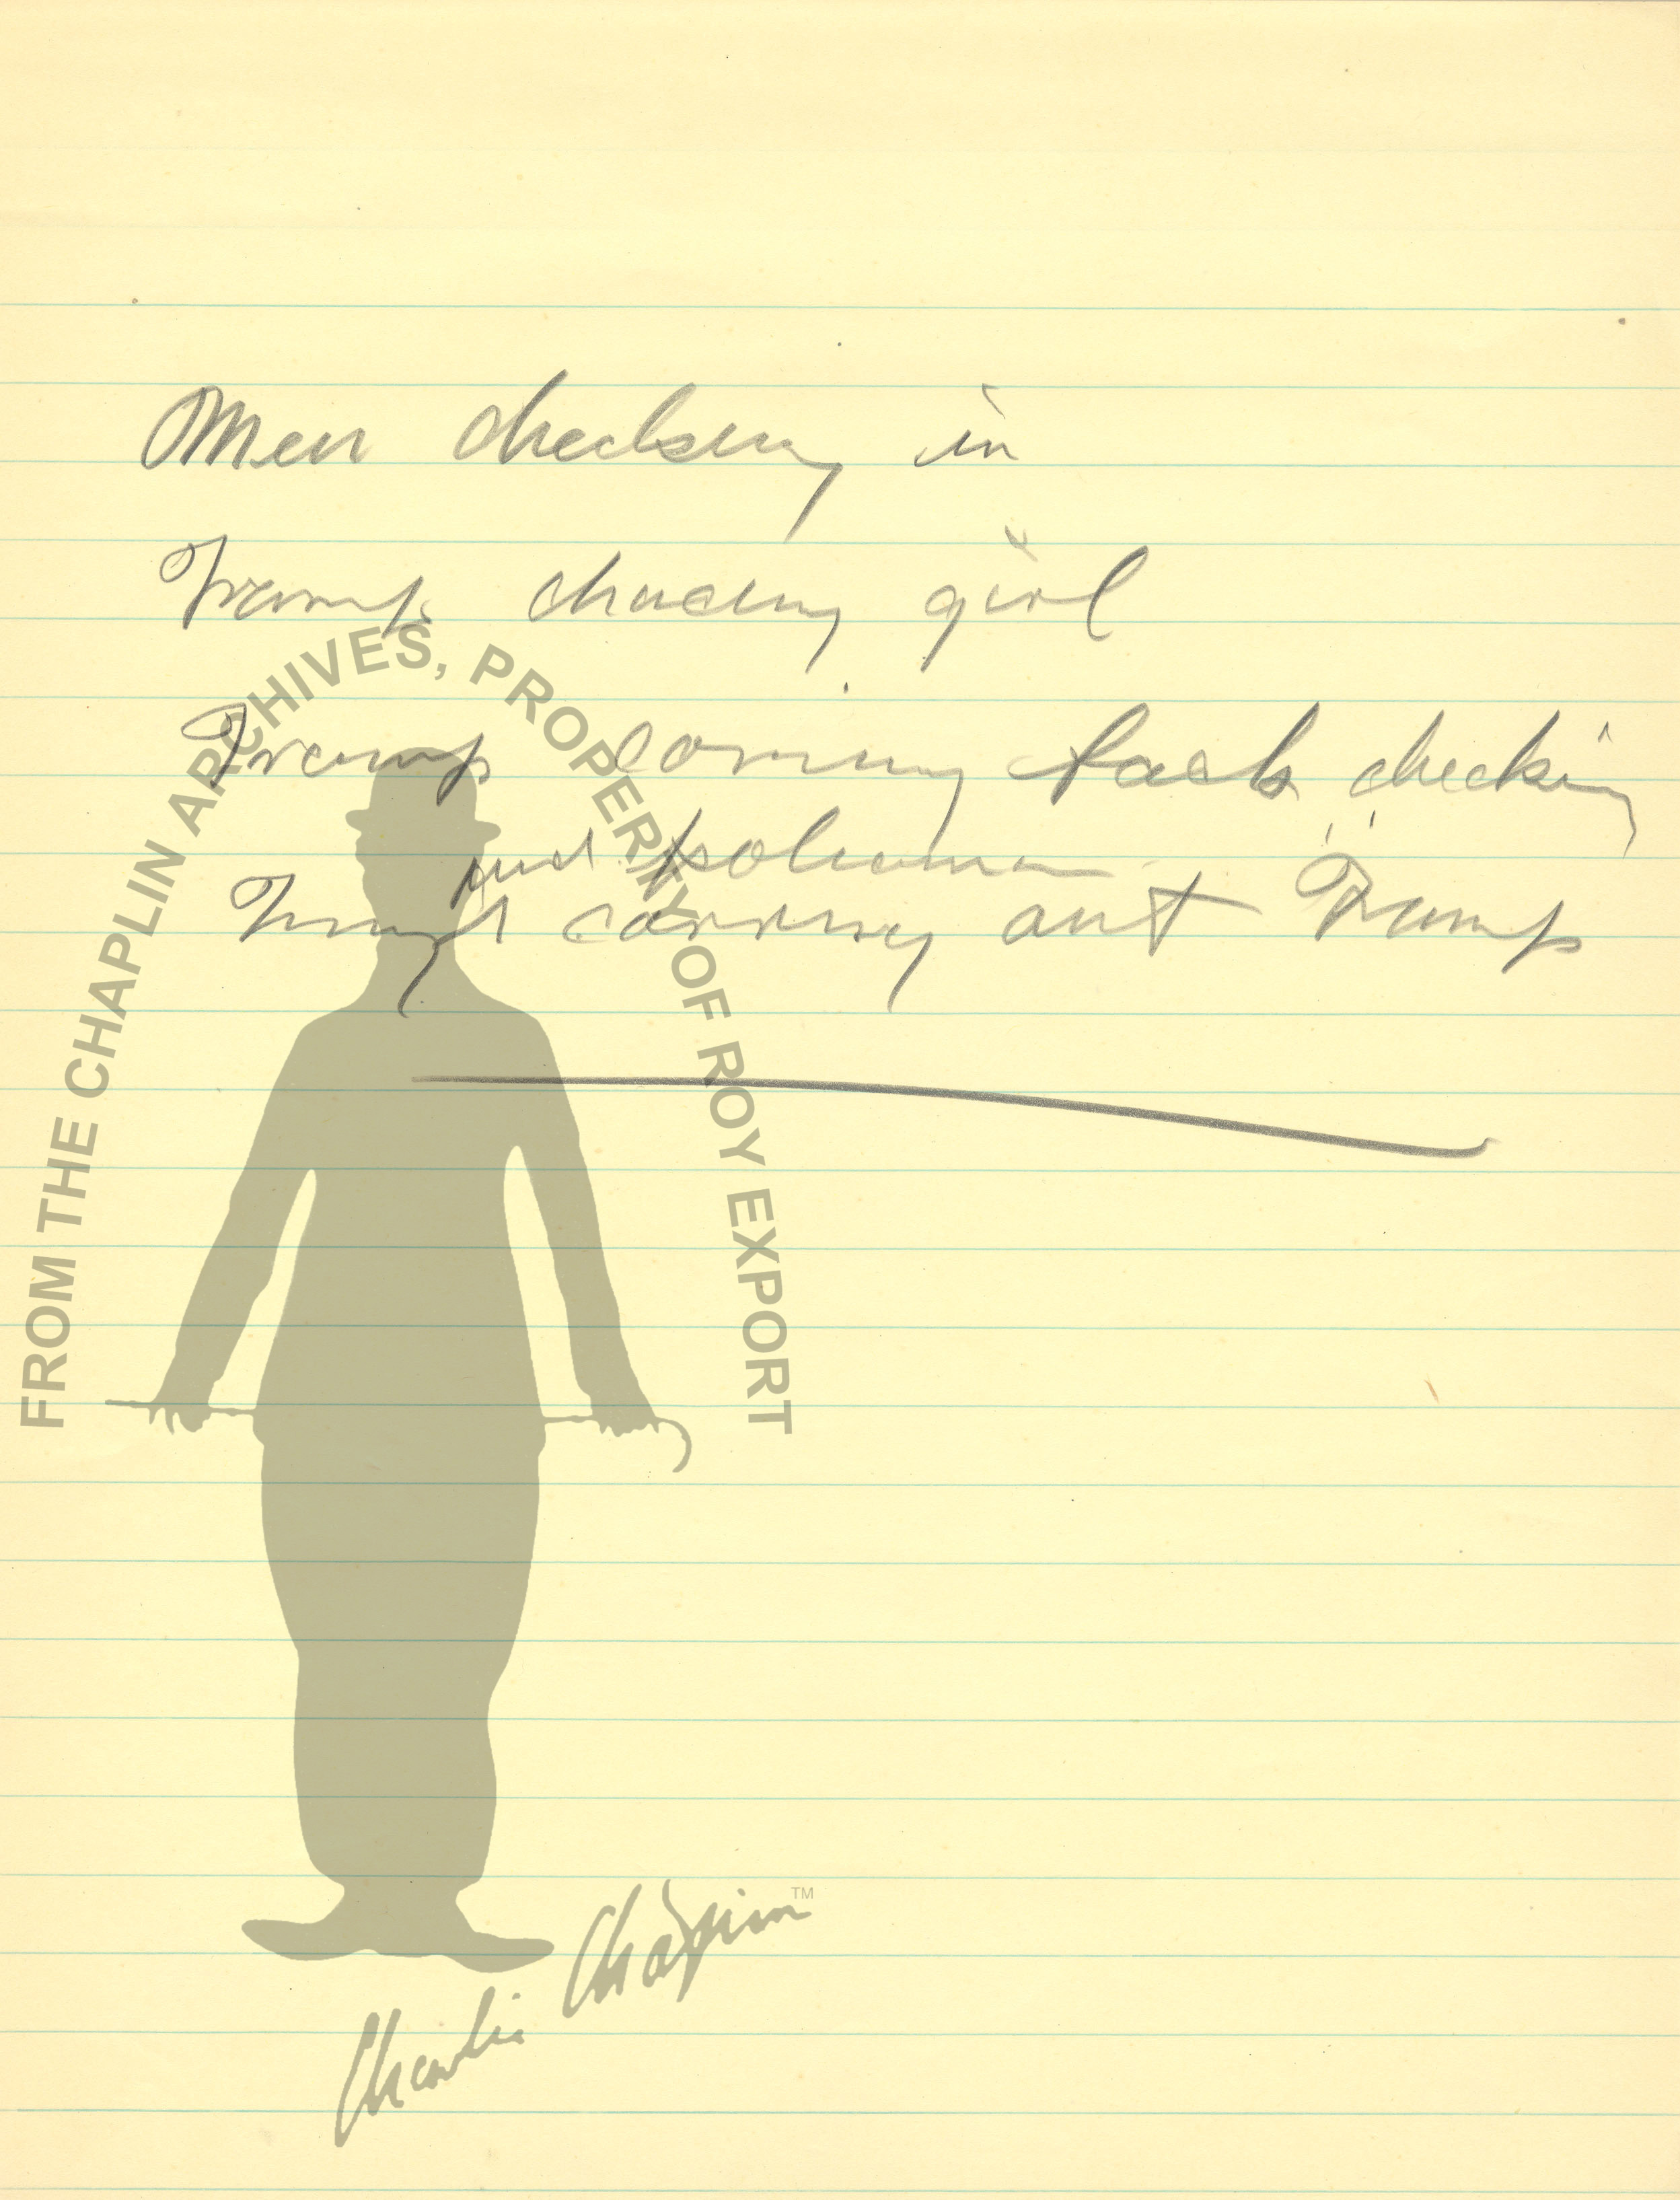 Men checking in
Tramp chasing girl
Tramp coming back checking
and policeman
carrying out Tramp
FROM THE CHAPLIN ARCHIVES, PROPERTY OF ROY EXPORT
Charlie Chaplin™